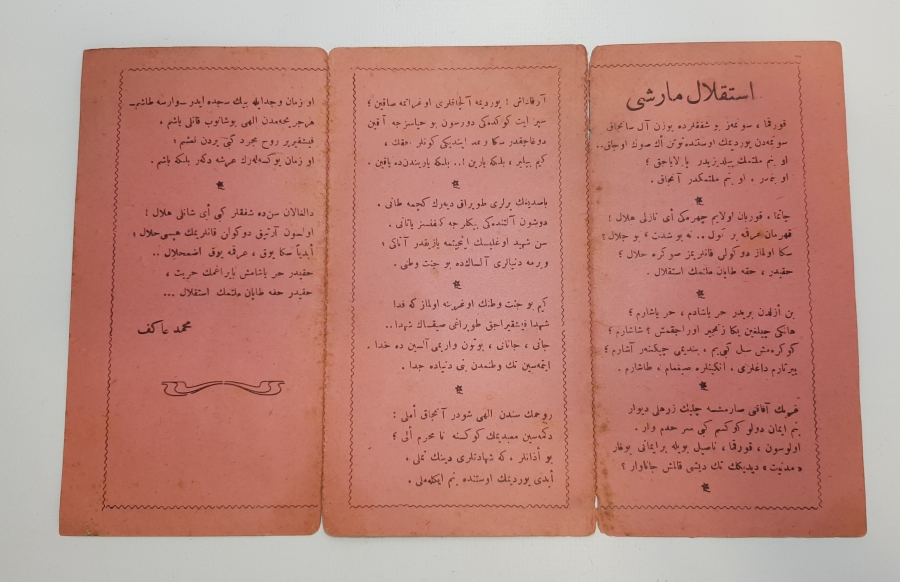 استقلال مارشی
قورقما ، سونمه‌ز بو شفقلرده یوزن آل سانجاق
سونمه‌دن یوردیمك اوستنده توتن اڭ صوك اوجاق..
او بنم ملتمك ییلدیزیدر پارلایاجق ؛
او بنمدر ، او بنم ملتمكدر آنجاق .
چاتما ، قوربان اولایم چهره‌كی أی نازلی هلال !
قهرمان عرقمه بر كول .. نه بو شدت ، بو جلال ؟
سكا اولماز دوكولن قانلریمز صوكره حلال ؛
حقیدر ، حقه طاپان ملتمك استقلال .
بن ازلدن بریدر حر یاشادم ، حر یاشارم ؛
هانكی چیلغین بكا زنجیر اوراجقمش ؟ شاشارم ؛
كوكره‌مش سل كبی‌یم ، بندیمی چیكنه‌ر آشارم ؛
ییرتارم داغلری ، أنكینلره صیغمام ، طاشارم .
غربك آفاقنی صارمشسه چلیك زرهلی دیوار
بنم ایمان دولو كوكسم كبی سر حدم وار .
اولوسون ، قورقما ، ناصیل بویله بر ایمانی بوغار
« مدنیت » دیدیكك تك دیشی قالمش جاناوار ؟
آرقاداش ! یوردیمه آلچاقلری اوغراتمه صاقین ؛
سپر ایت كوكده‌كی دورسون بو حیاسزجه آقین
دوغاجقدر سكا وعد ایتدیكی كونلر حقك ،
كیم بیلیر ، بلكه یارین !.. بلكه یاریندن‌ده یاقین .
باصدیغك یرلری طوپراق دیه‌رك كچمه طانی .
دوشون آلتنده‌كی بیكلرجه كفنسز یاتانی .
سن شهید اوغلیسك اینجیتمه یازیقدر آتاكی ؛
ویرمه دنیالری آلسه‌ك‌ده بو جنت وطنی .
كیم بو جنت وطنك اوغرینه اولماز كه فدا
شهدا فیشقیراجق طوپراغی صیقسه‌ك شهدا ..
جانی ، جانانی ، بوتون واریمی آلسین ده خدا .
ایتمه‌سین تك وطنمدن بنی دنیاده جدا .
روحمك سندن الهی شودر آنجاق أملی :
دكمه‌سین معبدیمك كوكسنه نا محرم ألی ؛
بو أذانلر ، كه شهادتلری دینك تملی ،
أبدی یوردیمك اوستنده بنم ایكله‌ملی .
او زمان وجدایله بیك سجده ایدر ـ وارسه طاشم ـ
هر جریحه‌مدن الهی بوشانوب قانلی یاشم ،
فیشقیریر روح مجرد كبی یردن نعشم ؛
او زمان یوكسه‌له‌رك عرشه دكر بلكه باشم .
دالغالان سن‌ده شفقلر كبی أی شانلی هلال !
اولسون آرتیق دوكولن قانلریمك هپسی حلال ؛
أبدیاً سكا یوق ، عرقمه یوق اضمحلال ..
حقیدر حر یاشامش بایراغمك حریت ،
حقیدر حقه طاپان ملتمك استقلال ...
محمد عاكف